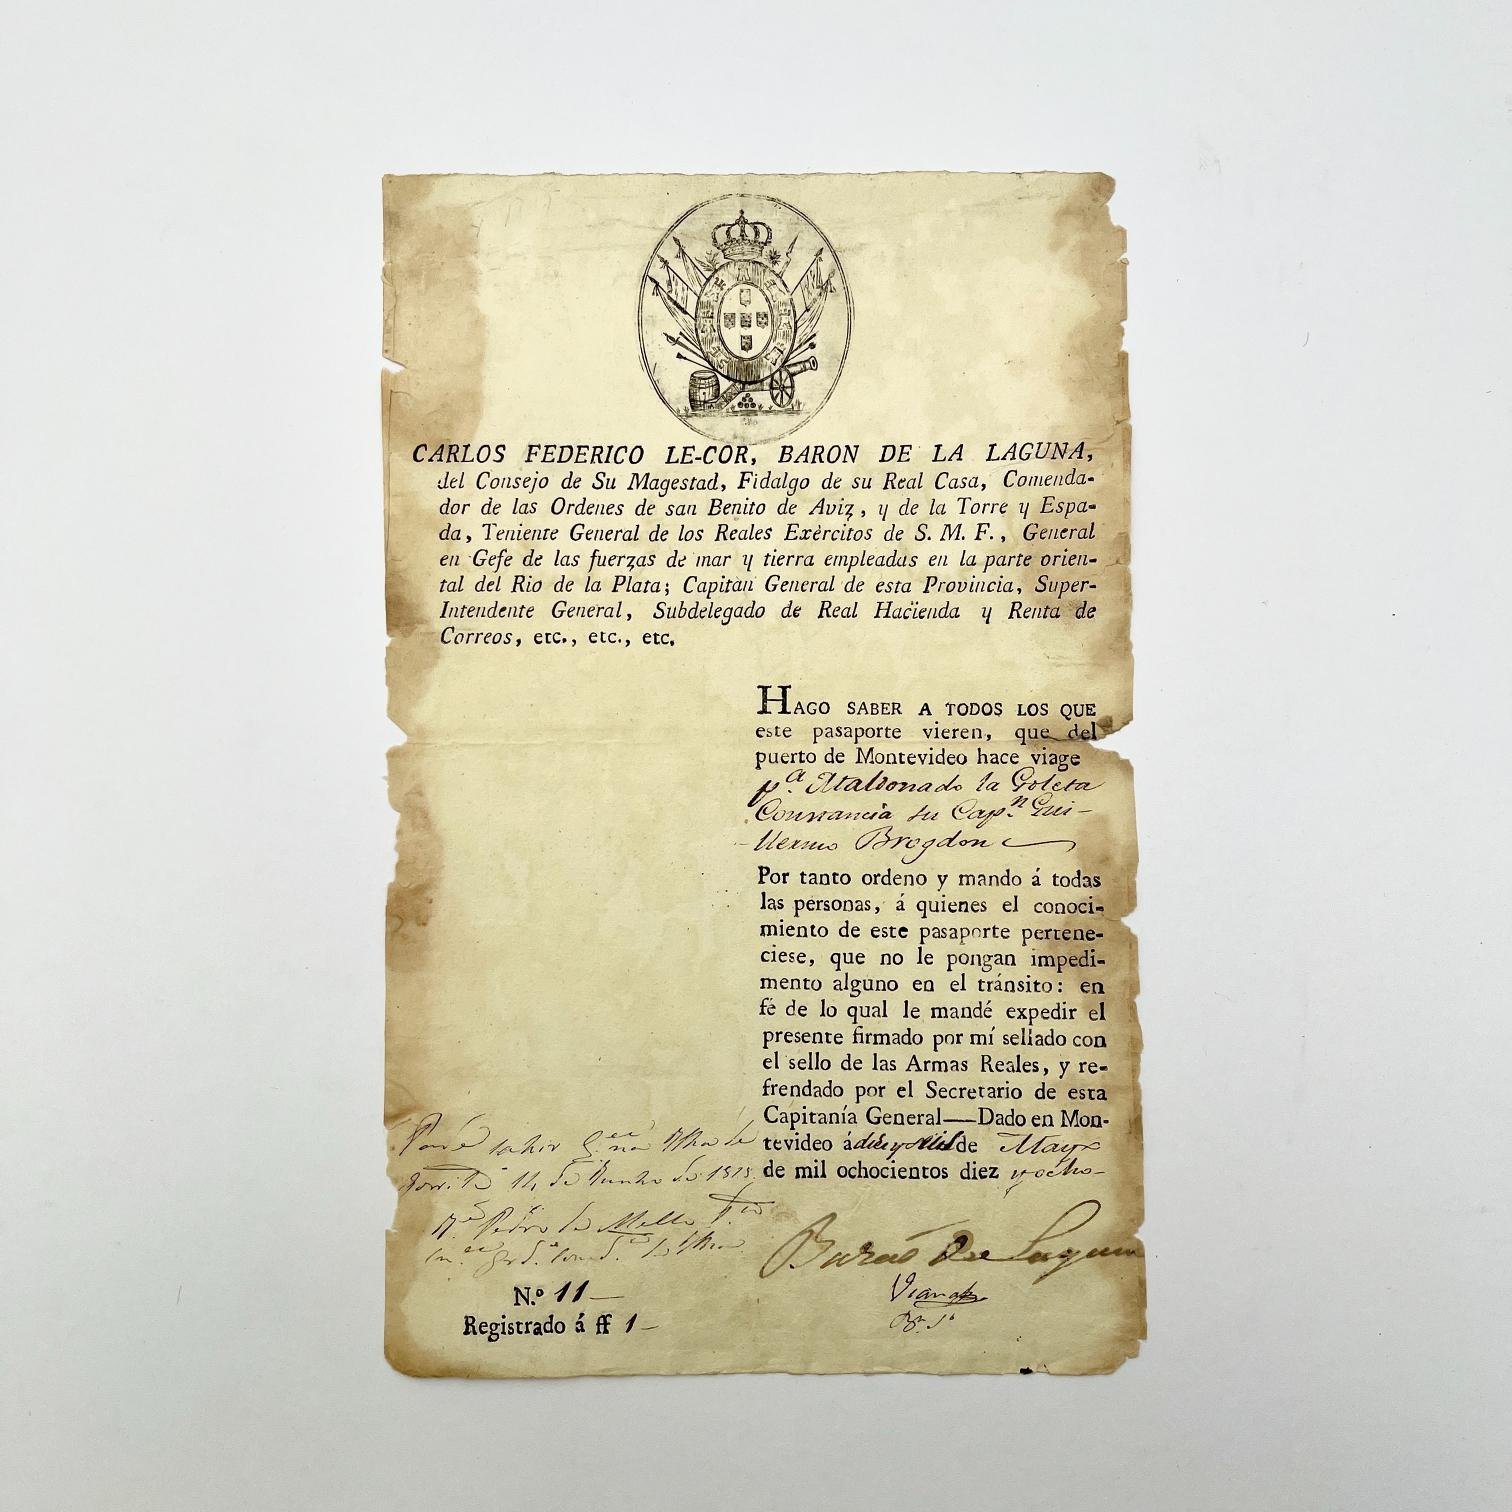 CARLOS FEDERICO LE-COR, BARON DE LA LAGUNA,
del Consejo de Su Magestad, Fidalgo de su Real Casa, Comenda-
dor de las Ordenes de san Benito de Aviz, y de la Torre y Espa-
da, Teniente General de los Reales Exèrcitos de S. M. F., General
en Gefe de las fuerzas de mar y tierra empleadas en la parte orien-
tal del Rio de la Plata; Capitàn General de esta Provincia, Super-
Intendente General, Subdelegado de Real Hacïenda y Renta de
Correos, etc., etc., etc.
HAGO SABER A TODOS LOS QUE
este pasaporte vieren, que del
puerto de Montevideo hace viage
pª. Maldonado la Goleta
Constancia su Capⁿ. Gui-
llermo Brogdon
Por tanto ordeno y mando á todas
las personas, á quienes el conoci-
miento de este pasaporte pertene-
ciese, que no le pongan impedi-
mento alguno en el tránsito: en
fé de lo qual le mandé expedir el
presente firmado por mí sellado con
el sello de las Armas Reales, y re-
frendado por el Secretario de esta
Capitanía General—Dado en Mon-
tevideo á diez y seis de Mayo
de mil ochocientos diez y ocho-
14 de Junho de 1818
Pedro de Mello
Baraõ da Laguna
Viana
N.º 11-
Registrado á ff 1-